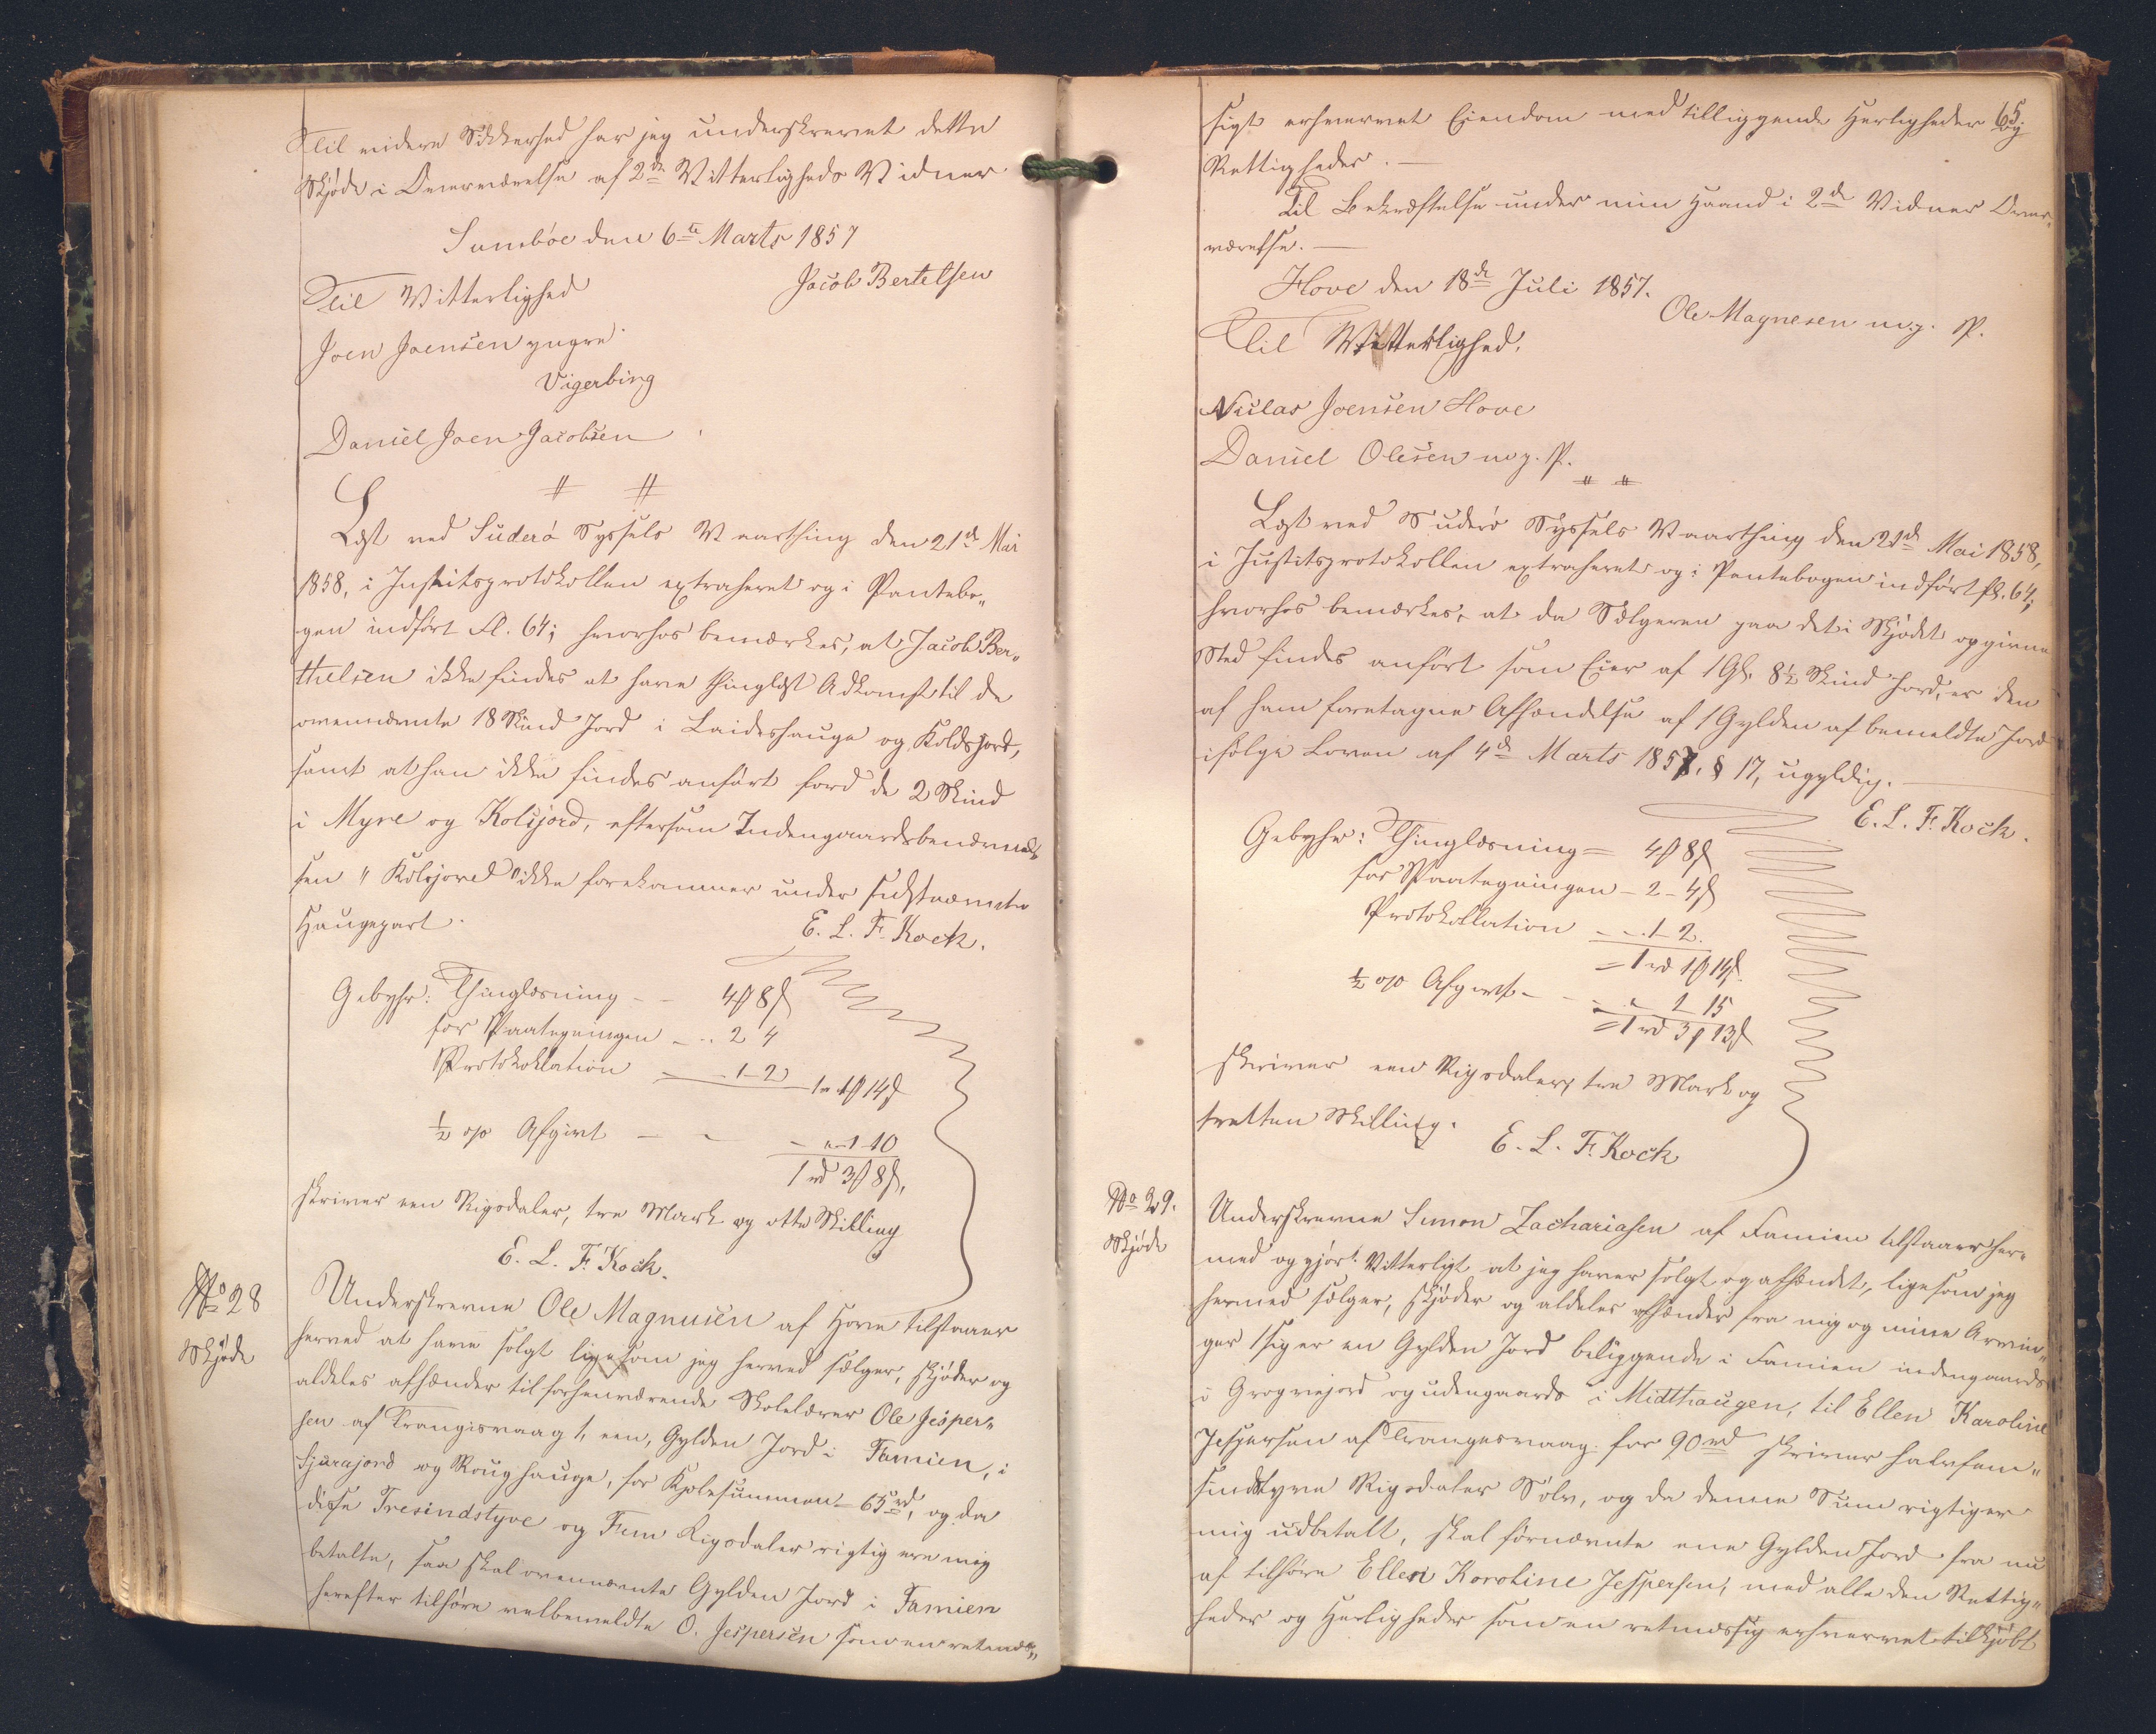 Til videre Sikkerhed har jeg underskrevet dette
Skjöde i Overværelse af 2de Vitterligheds Vidner
Sumböe den 6te Marts 1857
Jacob Bertelsen
Til Vitterlighed
Joen Joensen yngre
Vigerbing
Daniel Joen Jacobsen
Læst ved Suderö Syssels Vaarthing den 21de Mai
1858, i Justitsprotokollen extraheret og i Pantebo„
gen indfört fol. 64; hvorhos bemærkes, at Jacob Ber„
thelsen ikke findes at have thinglæst Adkomst til de
ovennævnte 18 Skind Jord i Laideshauge og Koldsjord,
samt at han ikke findes anfört for de 2 Skind
i Myre og Kolsjord, eftersom Indengaardsbenævnel„
sen "Kolsjord" ikke forekommer under sidstnævnte
Haugepart.
E. L. F. Kock.
Gebyhr: Thinglæsning - - 4 ß 8 ß
for Paategningen - .. 2 4
Protokollation - 1-2
1 rd 1 ß 14 ß
½ op Afgivt - - - „-1-10
1 rd 3 ß 8 ß,
skriver een Rigsdaler, tre Mark og otte Skilling
E. L. F. Kock.
No 28
Skjöde
Underskrevne Ole Magnusen af Hove tilstaaer
herved at have solgt ligesom jeg herved sælger, skjöder og
aldeles afhænder til forhenværende Skolelærer Ole Jesper„
sen af Trangisvaag 1, een, Gylden Jord i Famien, i
Sjurajord og Roughauge, for Kjøbesummen 65 rd, og da
disse Tresindstyve og Fem Rigsdaler rigtig ere mig
betalte, saa skal ovennævnte Gylden Jord i Famien
herefter tilhöre velbemeldte O. Jespersen som en retmæs„
65
sigt erhvervet Eiendom med tilliggende Herligheder og
Rettigheder. —
Til Bekræftelse under min Haand i 2de Vidner Over„
værelse. —
Hove den 18de Juli 1857.
Ole Magnesen m. p. P.
Til Vitterlighed.
Niclas Joensen Hove
Daniel Olesen m. p. P.
Læst ved Suderö Syssels Vaarthing den 21de Mai 1858,
i Justitsprotokollen extraheret og i Pantebogen indfört fol. 64;
hvorhos bemærkes, at da Sælgeren paa det i Skjödet opgivne
Sted findes anfört som Eier af 1 Gl. 8½ Skind Jord, er den
af ham foretagne Afhændelse af 1 Gylden af bemeldte Jord
ifölge Loven af 4de Marts 1857, § 17, ugyldig.
E. L. F. Kock.
Gebyhr: Thinglæsning = 4 ß 8 ß
for Paategningen - 2 - 4 ß
Protokollation - - . 1-2.
= 1 rd 1 ß 14 ß.
½ op Afgivt - - - 1 15
= 1 rd 3 ß 13 ß
skriver een Rigsdaler, tre Mark og
tretten Skilling.
E. L. F. Kock
No 29.
Skjöde
Underskrevne Simon Zachariasen af Famien tilstaaer her„
med og gjör Vitterligt at jeg haver solgt og afhændet, ligesom jeg
hermed sælger, skjöder og aldeles afhænder fra mig og mine Arvin„
ger 1 siger en Gylden Jord beliggende i Famien indengaards
i Grognejord og udengaards i Midthaugen, til Ellen Karoline
Jespersen af Trangesvaag for 90 rd skriver halvfem„
sindstyve Rigsdaler Sölv, og da denne Sum rigtig er
mig udbetalt, skal förnævnte ene Gylden Jord fra nu
af tilhöre Ellen Karoline Jespersen, med alle den Rettig„
heder og Herligheder som en retmæssig erhvervet tilkjöbt